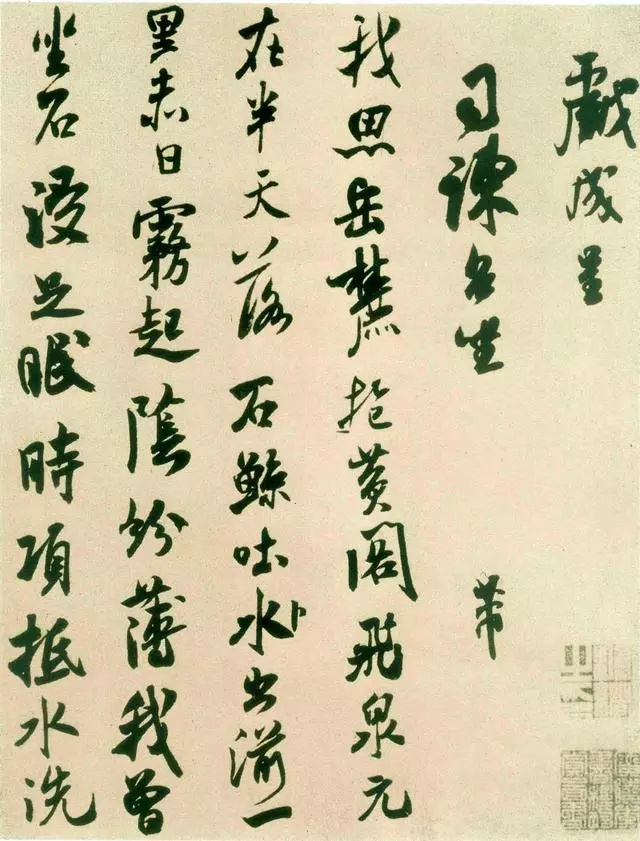 戲成呈
司諫台坐 芾
我思岳麓抱黃閣飛泉元
在半天落石鯨吐水卜出湔一
里赤日霧起陰紛薄我曾
坐石浸足眠時項抵水洗